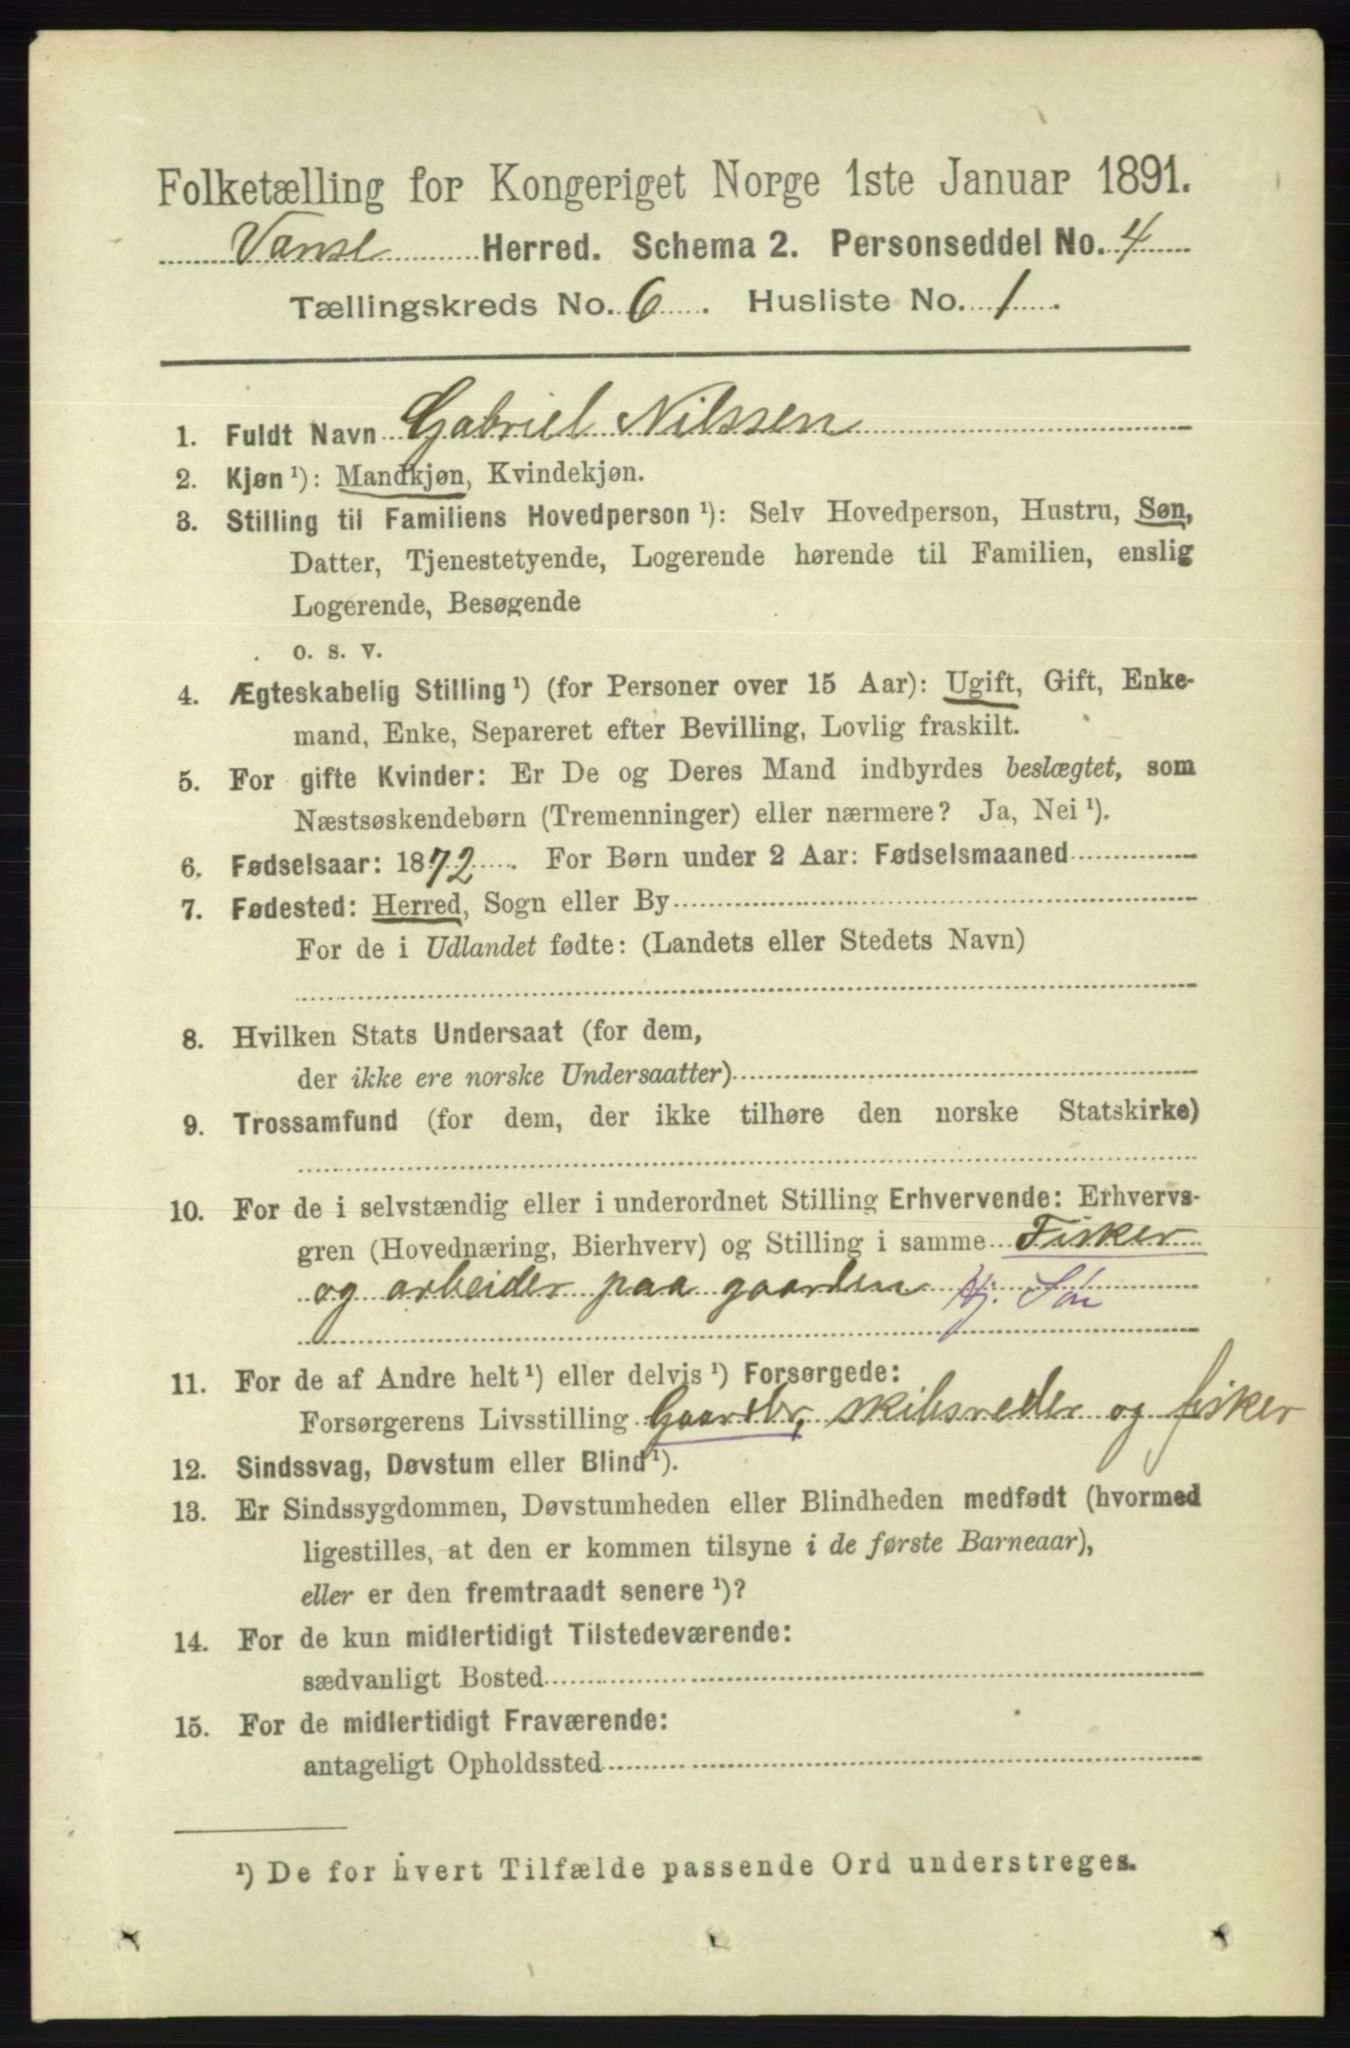 Folketælling for Kongeriget Norge 1ste Januar 1891.
Vanse Herred. Schema 2. Personseddel No. 4
Tællingskreds No. 6. Husliste No. 1.
1. Fuldt Navn Gabriel Nilssen
2. Kjøn ¹): Mandkjøn, Kvindekjøn.
3. Stilling til Familiens Hovedperson ¹): Selv Hovedperson, Hustru, Søn,
Datter, Tjenestetyende, Logerende hørende til Familien, enslig
Logerende, Besøgende
o. s. v.
4. Ægteskabelig Stilling ¹) (for Personer over 15 Aar): Ugift, Gift, Enke-
mand, Enke, Separeret efter Bevilling, Lovlig fraskilt.
5. For gifte Kvinder: Er De og Deres Mand indbyrdes beslægtet, som
Næstsøskendebørn (Tremenninger) eller nærmere? Ja, Nei ¹).
6. Fødselsaar: 1872. For Børn under 2 Aar: Fødselsmaaned
7. Fødested: Herred, Sogn eller By
For de i Udlandet fødte: (Landets eller Stedets Navn)
8. Hvilken Stats Undersaat (for dem,
der ikke ere norske Undersaatter)
9. Trossamfund (for dem, der ikke tilhøre den norske Statskirke)
10. For de i selvstændig eller i underordnet Stilling Erhvervende: Erhvervs-
gren (Hovednæring, Bierhverv) og Stilling i samme Fisker
og arbeider paa gaarden Hj. Søn
11. For de af Andre helt ¹) eller delvis ¹) Forsørgede:
Forsørgerens Livsstilling Gaardbr, skibsreder og fisker
12. Sindssvag, Døvstum eller Blind ¹).
13. Er Sindssygdommen, Døvstumheden eller Blindheden medfødt (hvormed
ligestilles, at den er kommen tilsyne i de første Barneaar),
eller er den fremtraadt senere ¹)?
14. For de kun midlertidigt Tilstedeværende:
sædvanligt Bosted
15. For de midlertidigt Fraværende:
antageligt Opholdssted
¹) De for hvert Tilfælde passende Ord understreges.